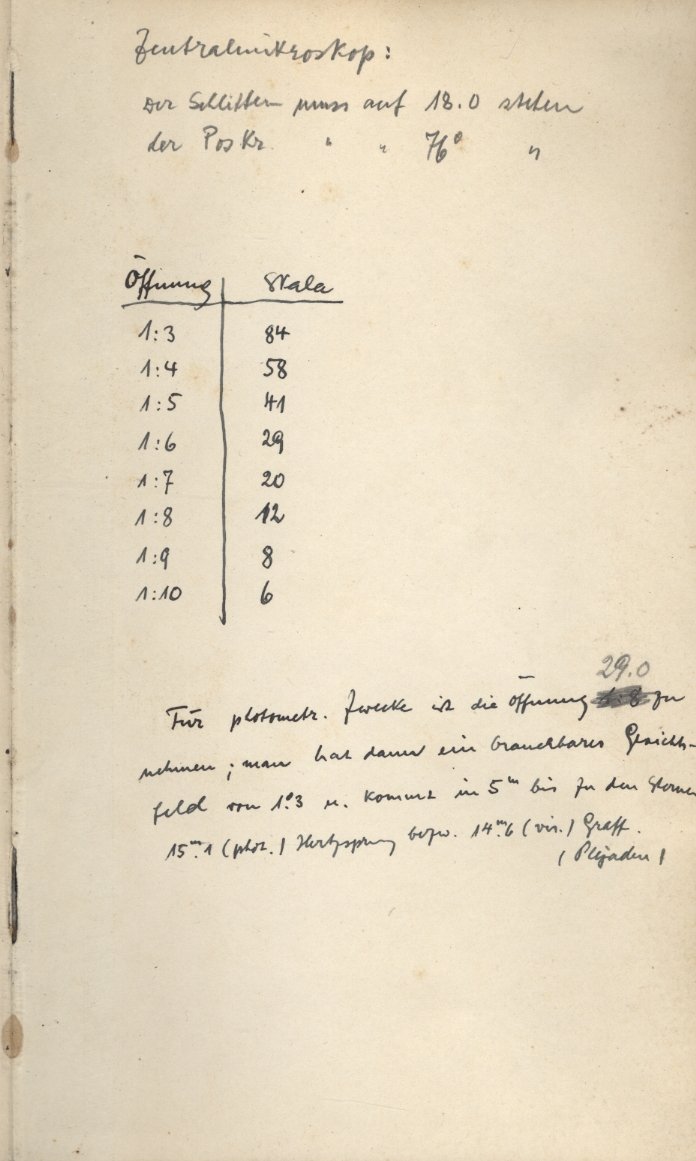 Zentralmikroskop:
Der Schlitten muss auf 18.0 stehen
der PosKr. " " 76° "
Öffnung Skala
1:3 84
1:4 58
1:5 41
1:6 29
1:7 20
1:8 12
1:9 8
1:10 6
29.0
Für photometr. Zwecke ist die Öffnung 1:8 zu
nehmen; man hat dann ein brauchbares Gesichts-
feld von 1°.3 u. kommt in 5ᵐ bis zu den Sternen
15ᵐ.1 (phot.) Hertzsprung bezw. 14ᵐ.6 (vis.) Graff.
(Plejaden)